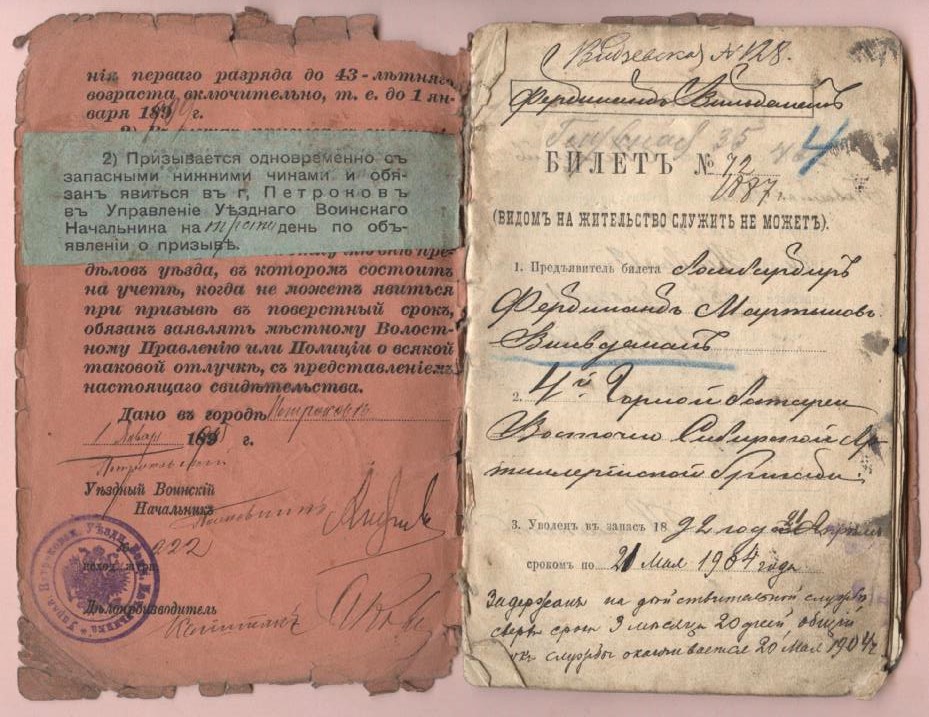 нія перваго разряда до 43-лѣтняго
возраста включительно, т. е. до 1 ян-
варя 189 г.
2) Призывается одновременно съ
запасными нижними чинами и обя-
занъ явиться въ г. Петроковъ
въ Управленіе Уѣзднаго Воинскаго
Начальника на третій день по объ-
явленіи о призывѣ.
дѣловъ уѣзда, въ которомъ состоитъ
на учетѣ, когда не можетъ явиться
при призывѣ въ поверстный срокъ,
обязанъ заявлять мѣстному Волост-
ному Правленію или Полиціи о всякой
таковой отлучкѣ, съ представленіемъ
настоящаго свидѣтельства.
Дано въ городѣ Петроковъ
1 Январ 189 г.
Петроковскій
Уѣздный Воинскій
Начальникъ
Полковникъ
922
исход. журн.
Дѣлопроизводитель
Капитанъ
Видзевская №128.
Фердинандъ Вильдеманъ
35
4
БИЛЕТЪ № 72
1887 г.
(ВИДОМЪ НА ЖИТЕЛЬСТВО СЛУЖИТЬ НЕ МОЖЕТЪ).
1. Предъявитель билета Бомбардиръ
Фердинандъ Мартиновъ
Вильдеманъ
2. 4й Горной батареи
Восточно Сибирской Ар-
тиллерійской бригады.
3. Уволенъ въ запасъ 1892 года 21 Апрѣля
срокомъ по 21 Мая 1904 года
Задержанъ на дѣйствительной службѣ
сверхъ срока 3 мѣсяца 20 дней общій
срокъ службы оканчивается 20 Мая 1904 г.